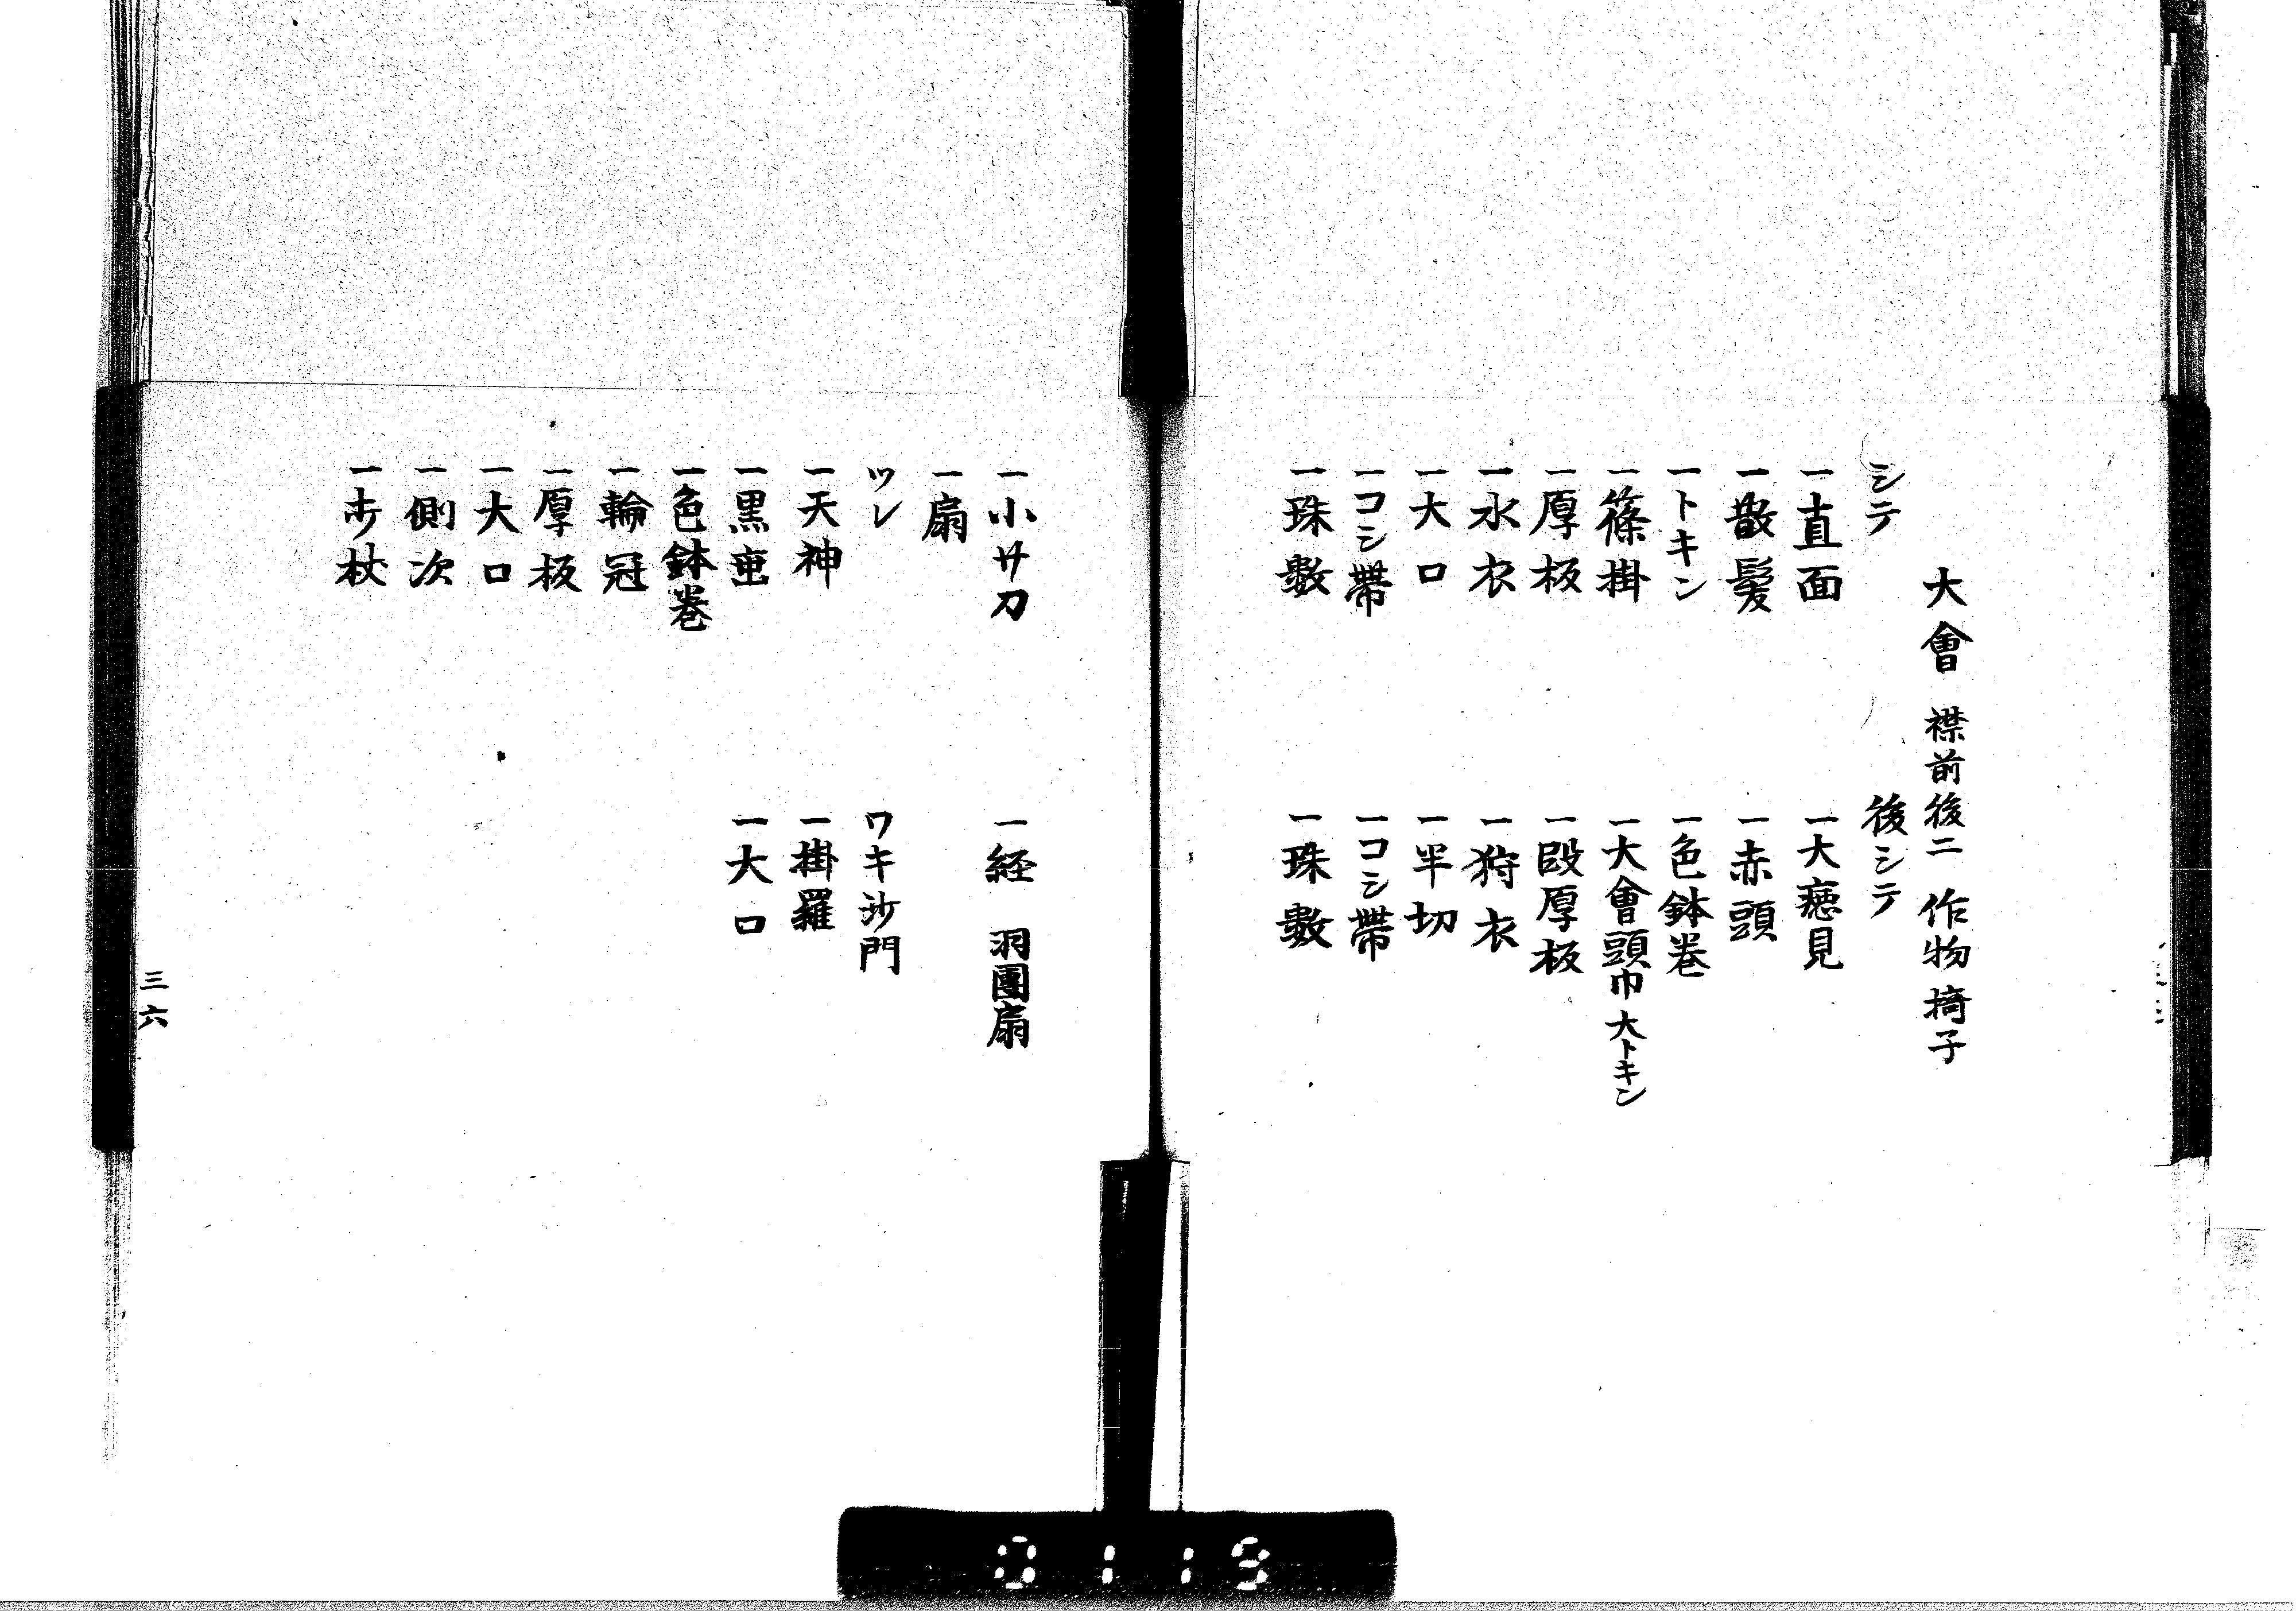 大會 襟前後二 作物 掎子
シテ 後シテ
一直面 一大癋見
一散髪 一赤頭
一トキン 一色鉢巻
一篠掛 一大會頭巾 大トキン
一厚板 一段厚板
一水衣 一狩衣
一大口 一半切
一コシ帯 一コシ帯
一珠數 一珠數
一小サ刀 一経 羽團扇
一扇
ツレ ワキ沙門
一天神 一掛羅
一黒垂 一大口
一色鉢巻
一輪冠
一厚板
一大口
一側次
一杖
三六
0113